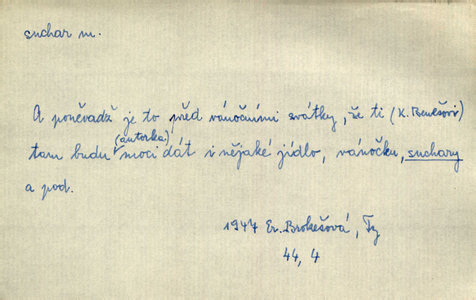 suchar m.
A poněvadž je to před vánočními svátky, že ti (K. Benešovi)
(autorka)
tam budu moci dát i nějaké jídlo, vánočku, suchary
a pod.
1947 Er. Brokešová, Ty
44, 4